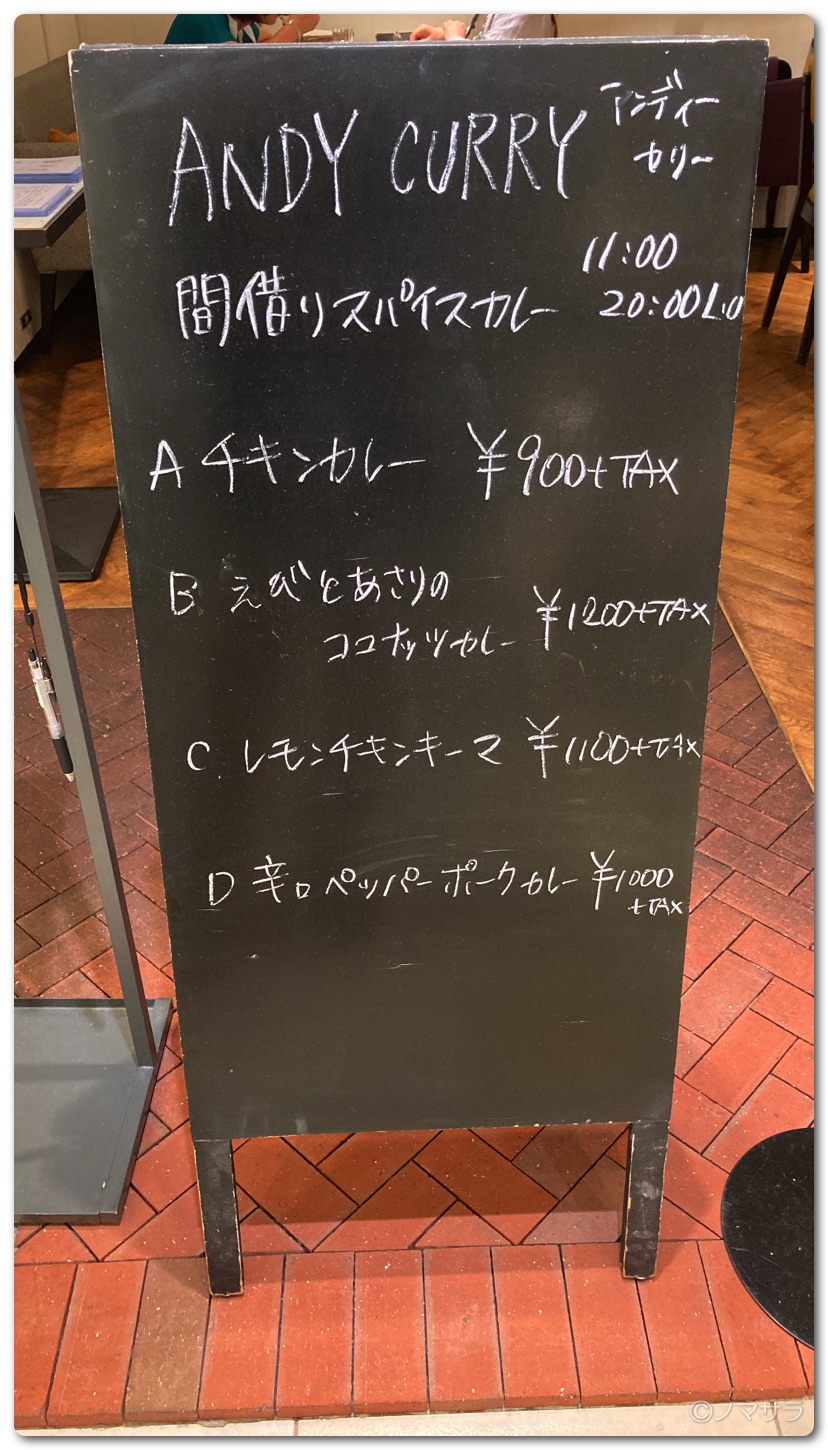 ANDY CURRY
アンディー
カリー
間借りスパイスカレー
11:00
20:00 L.O
A チキンカレー ¥900+TAX
B えびとあさりの
ココナッツカレー ¥1200+TAX
C. レモンチキンキーマ ¥1100+TAX
D 辛口ペッパーポークカレー ¥1000
+TAX
©ノマサラ